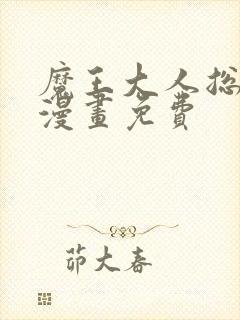 魔王大人总
漫畫免費
茆大春